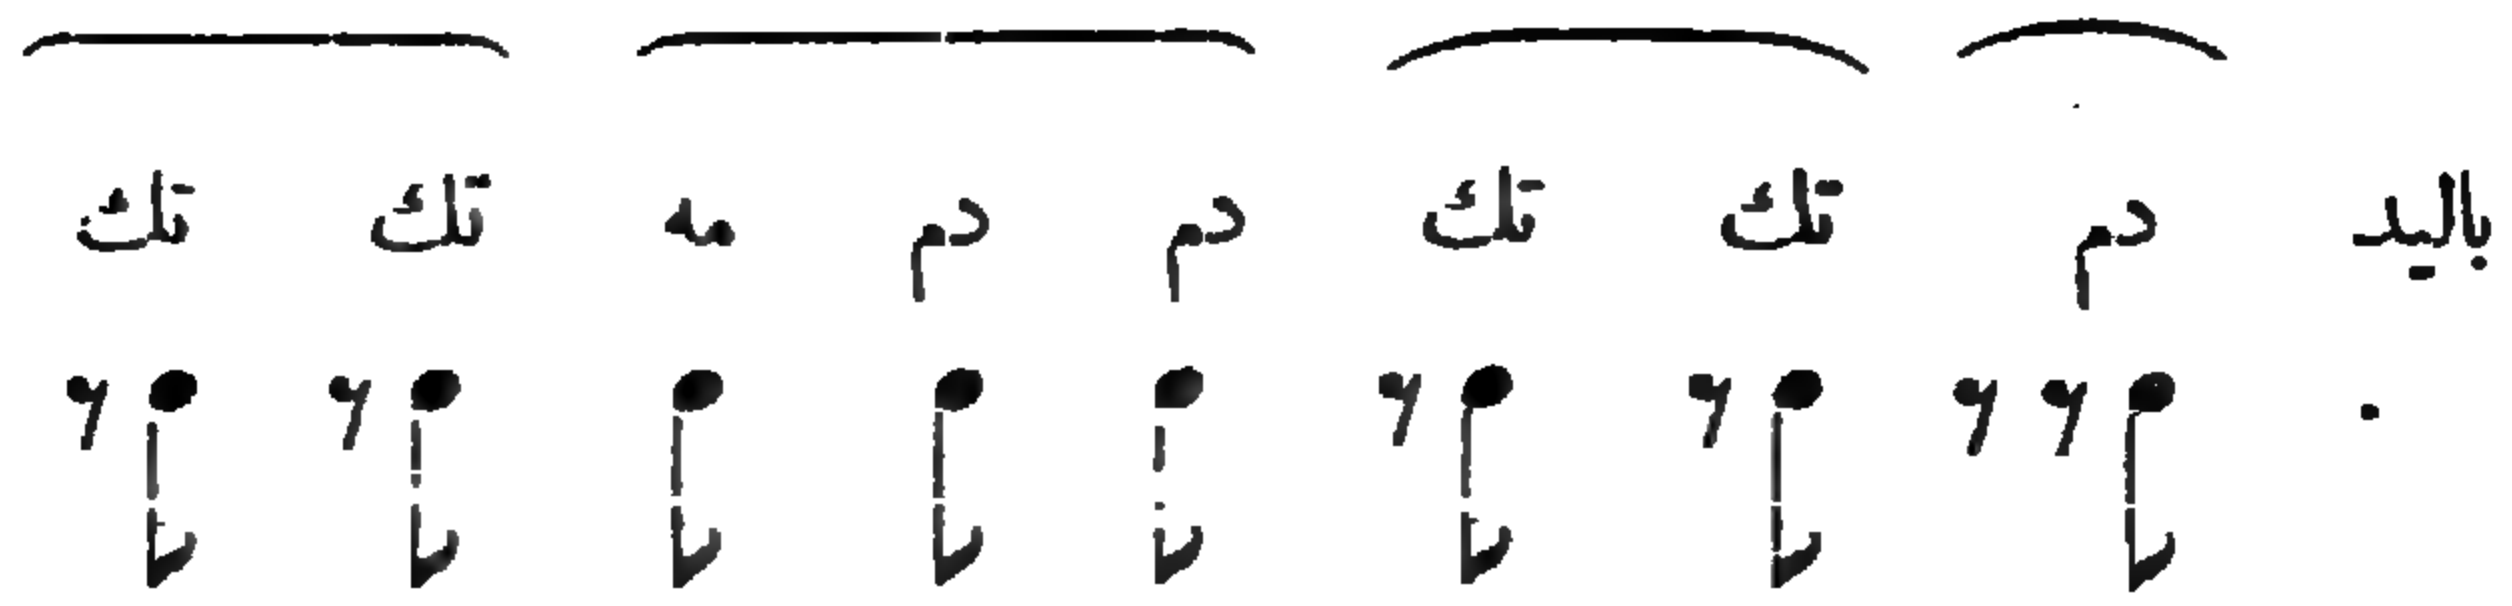 باليد دم تك تك دم دم مه تك تك